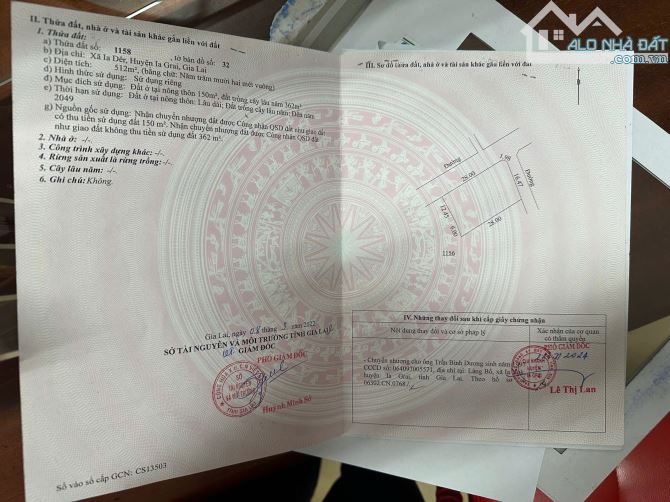 ALO NHÀ ĐẤT
II. Thửa đất, nhà ở và tài sản khác gắn liền với đất
1. Thửa đất:
a) Thửa đất số: 1158, tờ bản đồ số: 32
b) Địa chỉ: Xã Ia Dêr, Huyện Ia Grai, Gia Lai
c) Diện tích: 512m², (bằng chữ: Năm trăm mười hai mét vuông)
d) Hình thức sử dụng: Sử dụng riêng
đ) Mục đích sử dụng: Đất ở tại nông thôn 150m², đất trồng cây lâu năm 362m²
e) Thời hạn sử dụng: Đất ở tại nông thôn: Lâu dài; Đất trồng cây lâu năm: Đến năm
2049
g) Nguồn gốc sử dụng: Nhận chuyển nhượng đất được Công nhận QSD đất như giao đất
có thu tiền sử dụng đất 150 m². Nhận chuyển nhượng đất được Công nhận QSD đất
như giao đất không thu tiền sử dụng đất 362 m².
2. Nhà ở: -/-.
3. Công trình xây dựng khác: -/-.
4. Rừng sản xuất là rừng trồng: -/-.
5. Cây lâu năm: -/-.
6. Ghi chú: Không.
Gia Lai, ngày 08 tháng 3 năm 2022
SỞ TÀI NGUYÊN VÀ MÔI TRƯỜNG TỈNH GIA LAI
GIÁM ĐỐC
PHÓ GIÁM ĐỐC
Huỳnh Minh Sở
Số vào sổ cấp GCN: CS13503
III. Sơ đồ thửa đất, nhà ở và tài sản khác gắn liền với đất
Đường
Đường
1.98
28.00
16.47
12.45
6.00
28.00
1156
IV. Những thay đổi sau khi cấp giấy chứng nhận
Nội dung thay đổi và cơ sở pháp lý
Xác nhận của cơ quan
có thẩm quyền
- Chuyển nhượng cho ông Trần Bình Dương sinh năm
CCCD số: 064097005571, địa chỉ tại: Làng Bồ, xã Ia
huyện Ia Grai, tỉnh Gia Lai. Theo hồ sơ
06302.CN.0768
PHÓ GIÁM ĐỐC
Lê Thị Lan